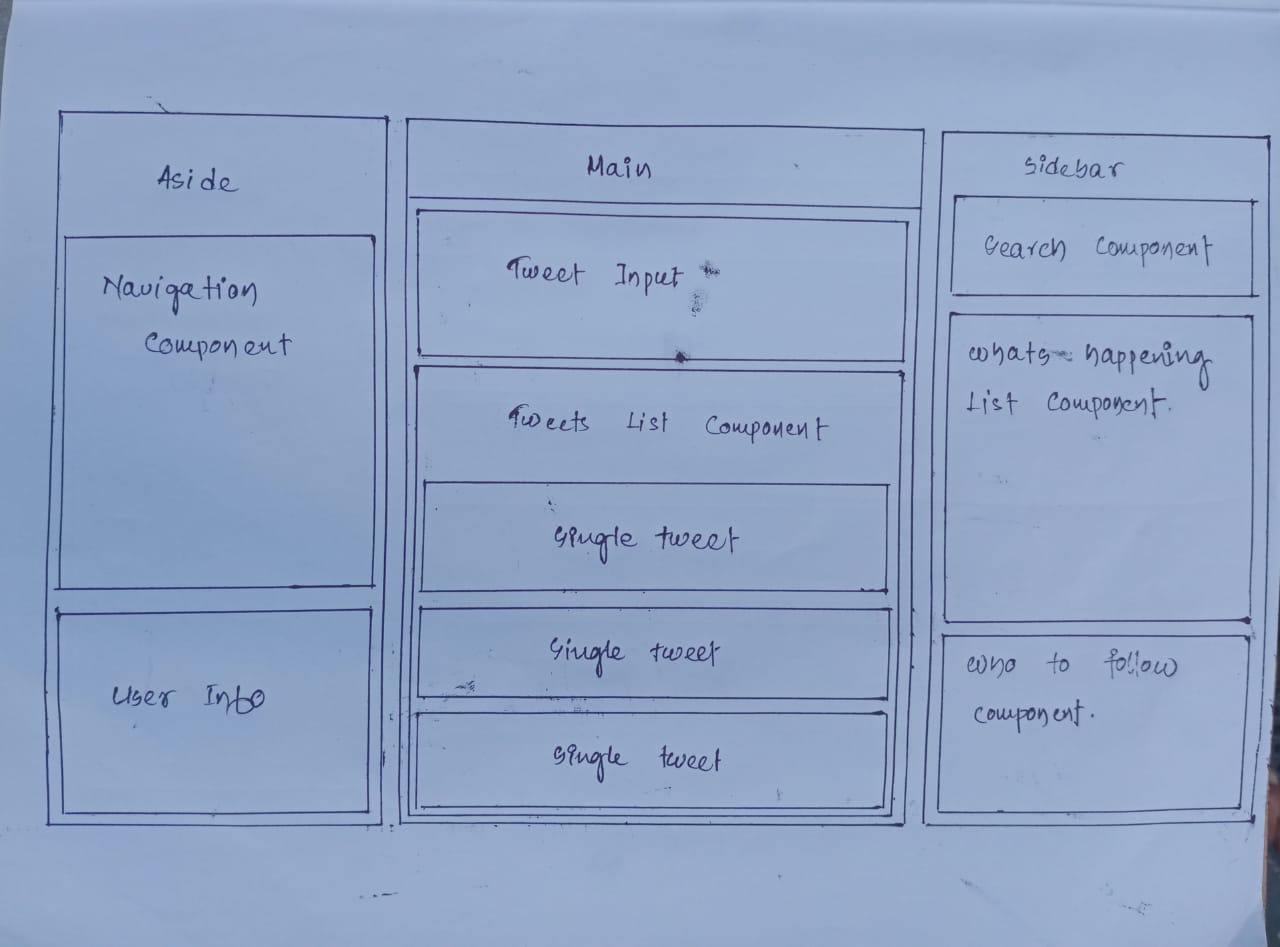 Aside
Navigation
Component
User Info
Main
Tweet Input
Tweets List Component
Single tweet
Single tweet
Single tweet
Sidebar
Search Component
Whats happening
List Component.
Who to follow
Component.